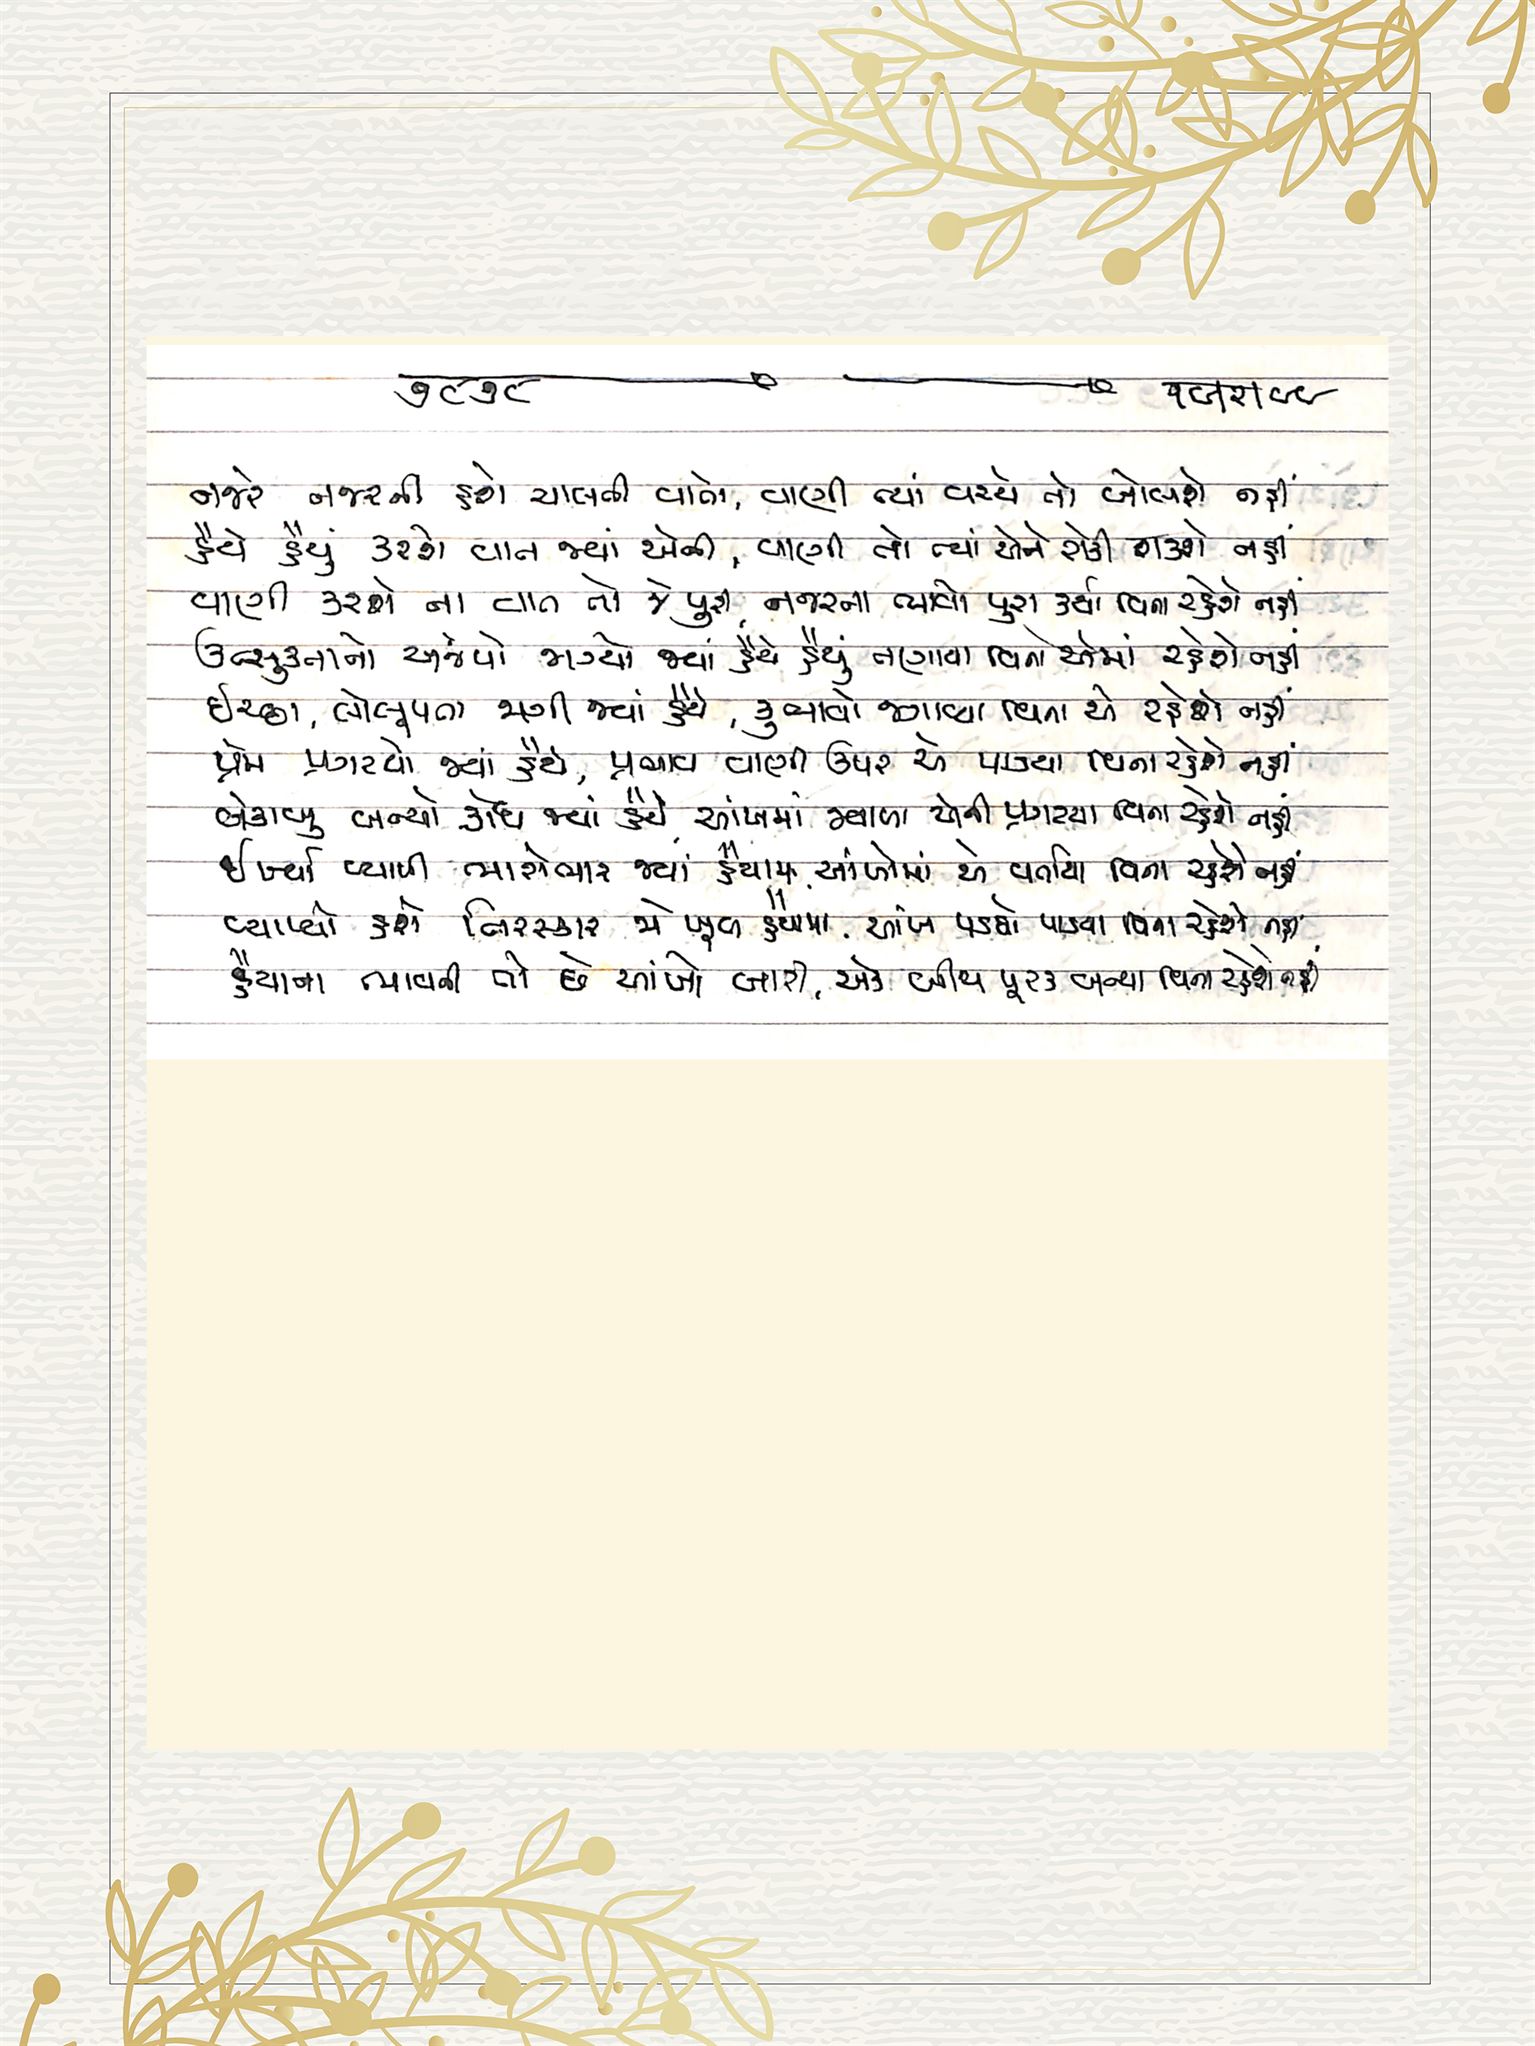 ૭૮૭૮
નજરે નજરની હશે ચાલતી વાતો, વાણી ત્યાં વચ્ચે તો બોલશે નહીં
હૈયે હૈયું કરશે વાત જ્યાં એની, વાણી તો ત્યાં એને રોકી શકશે નહીં
વાણી કરશે ના વાત તો જે પુરી, નજરના ભાવો પુરા કર્યા વિના રહેશે નહીં
ઉત્સુક્તાનો અજંપો જાગ્યો જ્યાં હૈયે હૈયું તણાવા વિના એમાં રહેશે નહીં
ઈચ્છા, લોલૂપતા જાગી જ્યાં હૈયે, કુભાવો જગાવ્યા વિના એ રહેશે નહીં
પ્રેમ પ્રગટયો જ્યાં હૈયે, પ્રભાવ વાણી ઉપર એ પાડયા વિના રહેશે નહીં
બેકાબુ બન્યો ક્રોધ જ્યાં હૈયે, આંખમાં જ્વાળા એની પ્રગટયા વિના રહેશે નહીં
ઈર્ષ્યા વ્યાપી ભારોભાર જ્યાં હૈયામાં, આંખોમાં એ વર્તાયા વિના રહેશે નહીં
વ્યાપ્યો હશે તિરસ્કાર જો ખૂબ હૈયામાં, આંખ પડઘો પાડવા વિના રહેશે નહીં
હૈયાના ભાવની તો છે આંખો બારી, એક બીજા પૂરક બન્યા વિના રહેશે નહીં